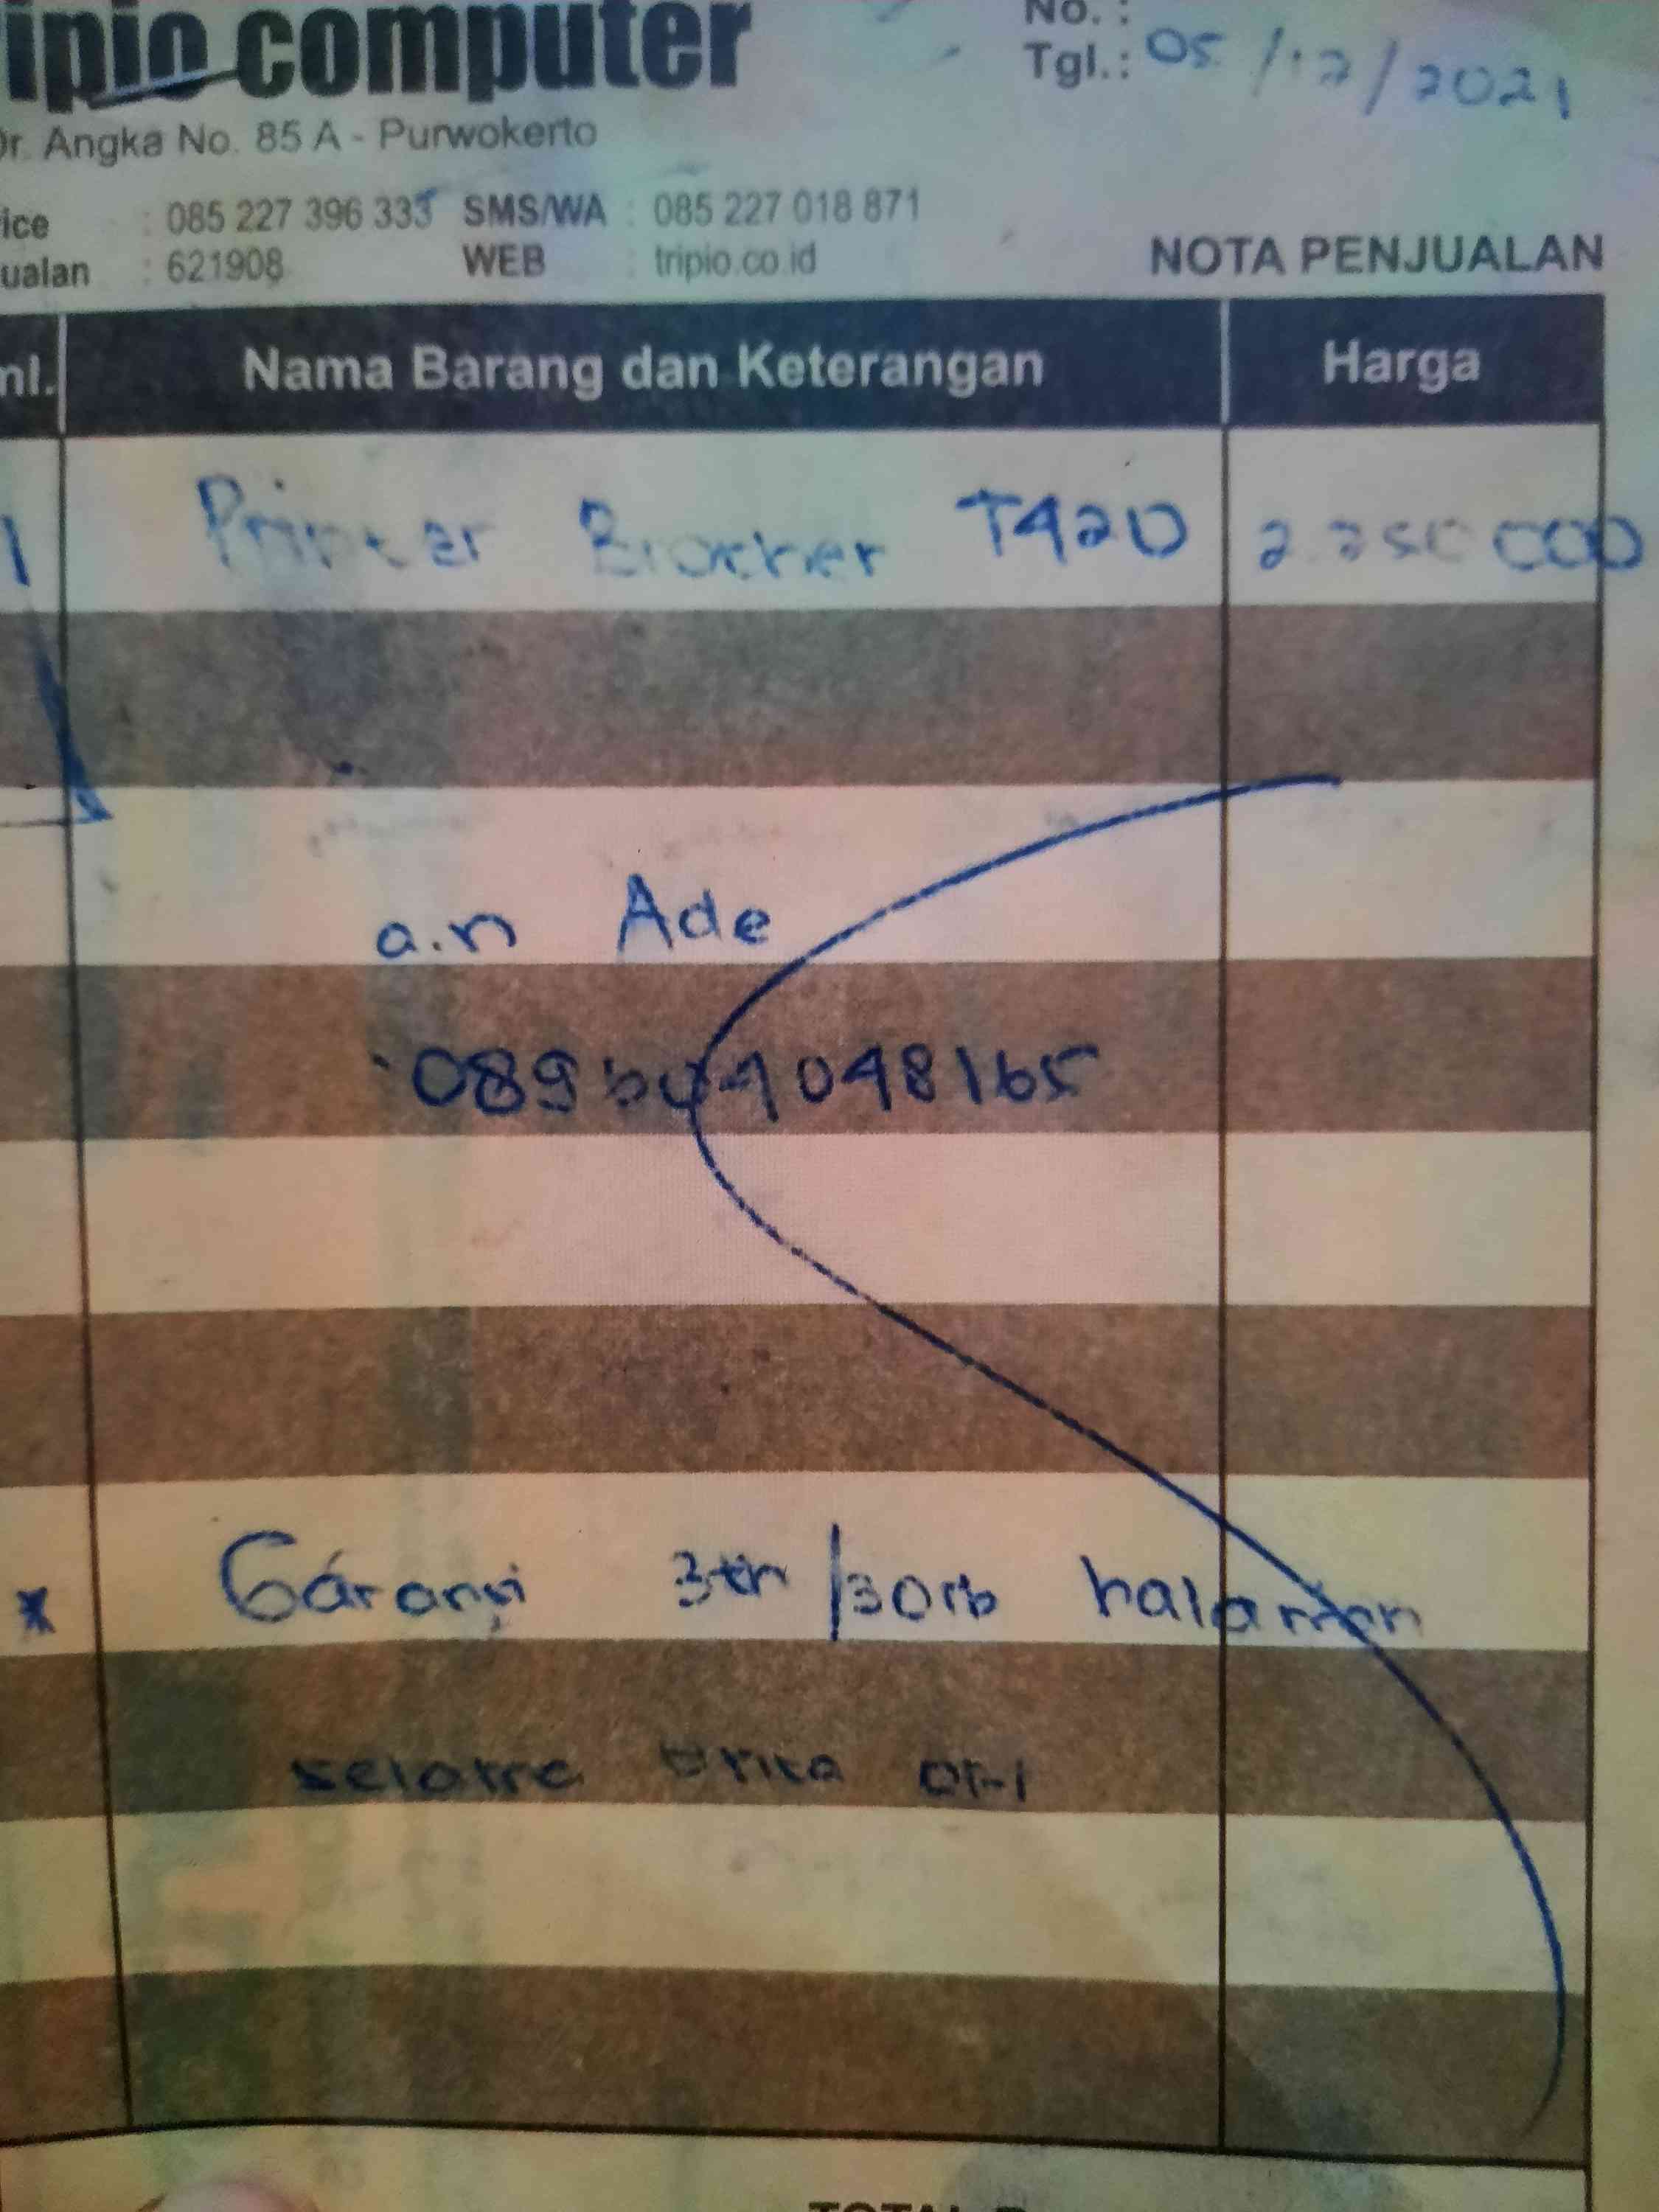 ipio computer
No. :
Tgl.: 05/12/2021
Dr. Angka No. 85 A - Purwokerto
ice : 085 227 396 333 SMS/WA : 085 227 018 871
ualan : 621908 WEB : tripio.co.id
NOTA PENJUALAN
ml. Nama Barang dan Keterangan Harga
1 Printer Brother T420 2.250 000
a.n Ade
* Garansi 3th/30rb halaman
selama tinta ori